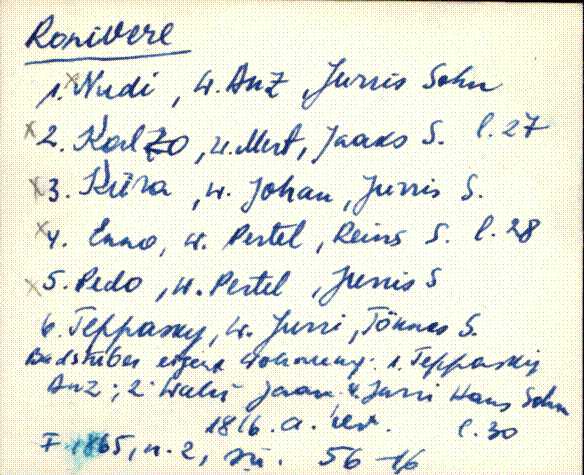 Ronivere
1. Nudi, w. Anz Jurris Sohn
2. Kalzo, w. Mert, Jaaks S. l. 27
3. Küra, w. Johan, Jurris S.
4. Enno, w. Pertel, Reins S. l. 28
5. Pedo, w. Pertel, Jurris S
6. Teppasky, w. Jurri, Tönnes S.
Badstüber eigene Wohnung: 1. Teppasky
Anz; 2. Jaan. Jurri Hans Sohn
1816. a. rev. l. 30
F 1865, n. 2, sü. 56 16